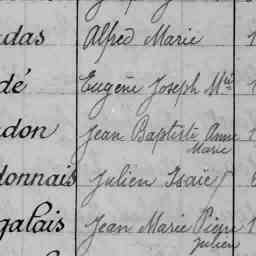 das Alfred Marie 1
dé Eugène Joseph Mie 1
don Jean Baptiste Anne 1
Marie
donnais Julien Isaïe 6
galais Jean Marie Pierre 1
Julien